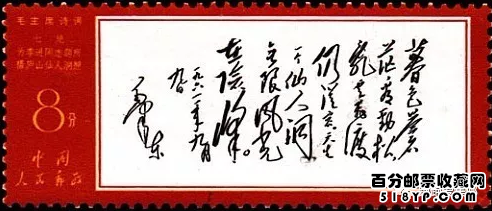 毛主席诗词
七绝
为李进同志题所
摄庐山仙人洞照
8分
中国
人民邮政
暮色蒼
茫看劲松
亂雲飛渡
仍從容天生
一个仙人洞
无限風光
在險峰。
一九六一年九月
九日
毛泽东
百分邮票收藏网
518YP.com